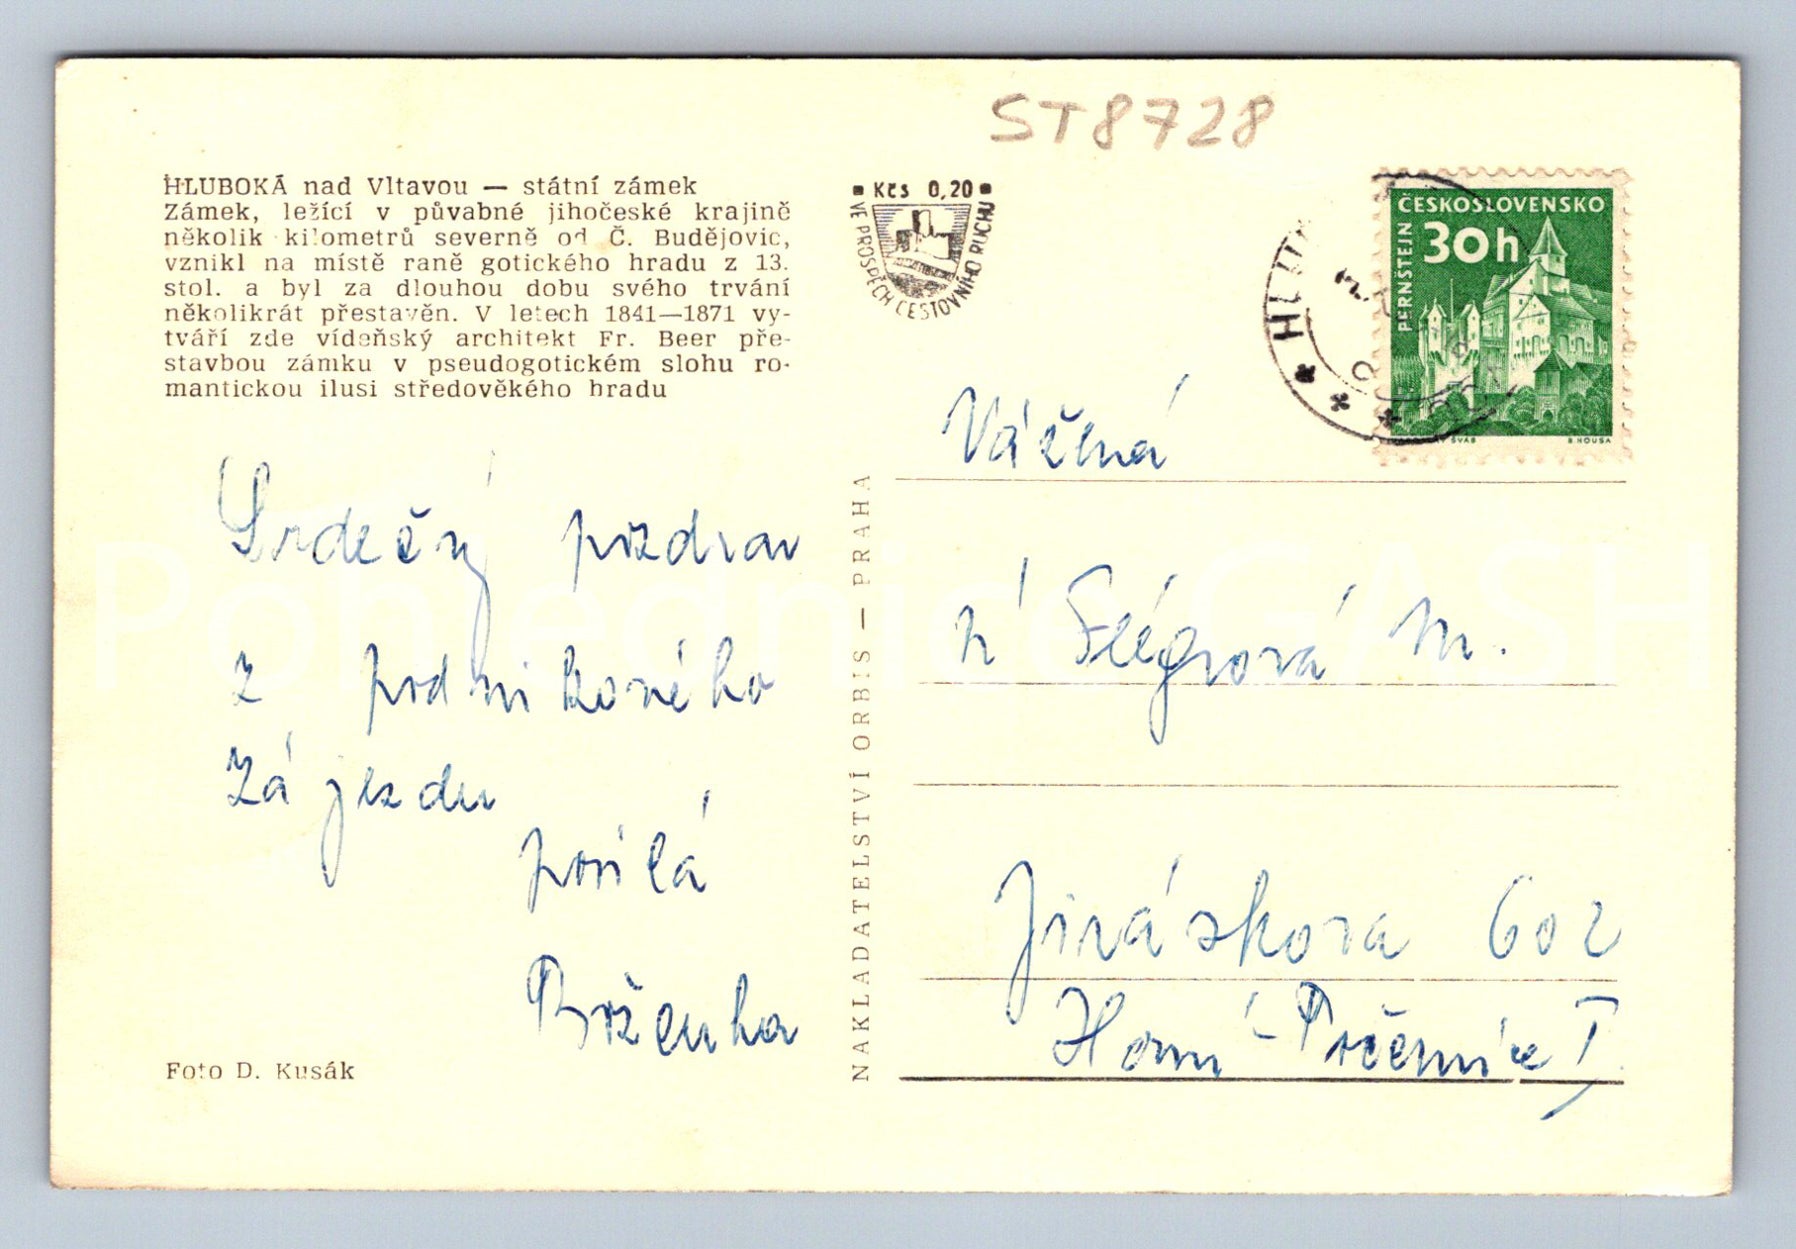 ST8728
HLUBOKÁ nad Vltavou — státní zámek
Zámek, ležící v půvabné jihočeské krajině
několik kilometrů severně od Č. Budějovic,
vznikl na místě raně gotického hradu z 13.
stol. a byl za dlouhou dobu svého trvání
několikrát přestavěn. V letech 1841—1871 vy-
tváří zde vídeňský architekt Fr. Beer pře-
stavbou zámku v pseudogotickém slohu ro-
mantickou ilusi středověkého hradu
Srdečný pozdrav
z podnikového
zájezdu
posílá
Boženka
Foto D. Kusák
NAKLADATELSTVÍ ORBIS — PRAHA
Kčs 0,20
VE PROSPĚCH CESTOVNÍHO RUCHU
ČESKOSLOVENSKO
30h
PERNŠTEJN
ŠVÁB
B. HOUSA
HLUB
Vážená
M.
Jiráskova 602
Horní-Počernice I
Pohlednice GASH